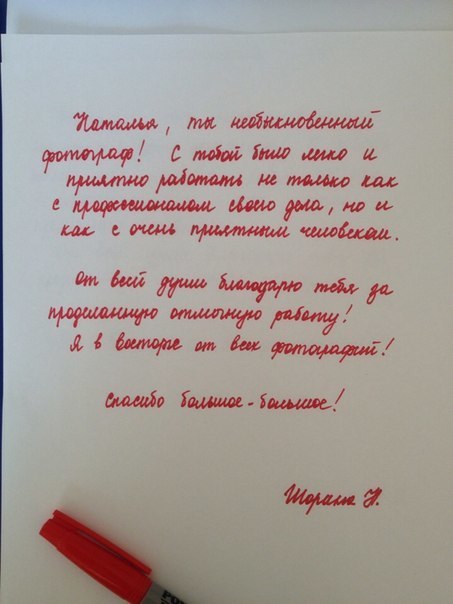 Наталья, ты необыкновенный
фотограф! С тобой было легко и
приятно работать не только как
с профессионалом своего дела, но и
как с очень приятным человеком.
От всей души благодарю тебя за
проделанную отличную работу!
Я в восторге от всех фотографий!
Спасибо большое-большое!
Н.